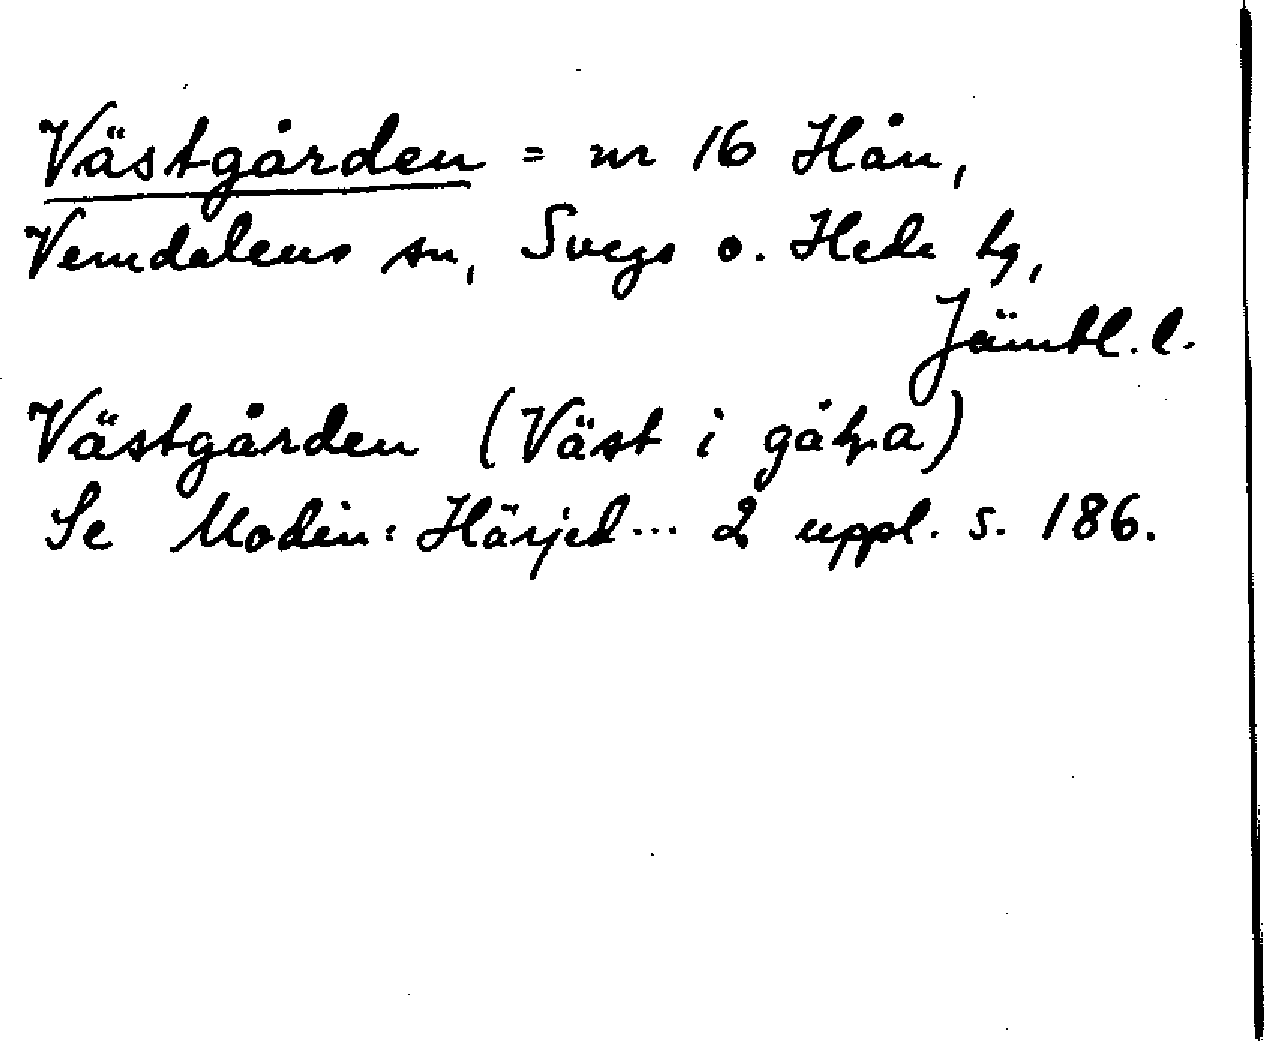 Västgården = nr 16 Hån,
Vemdalens sn, Svegs o. Hede tg,
Jämtl. l.
Västgården (Väst i
Se Modin: Härjed... 2 uppl. s. 186.